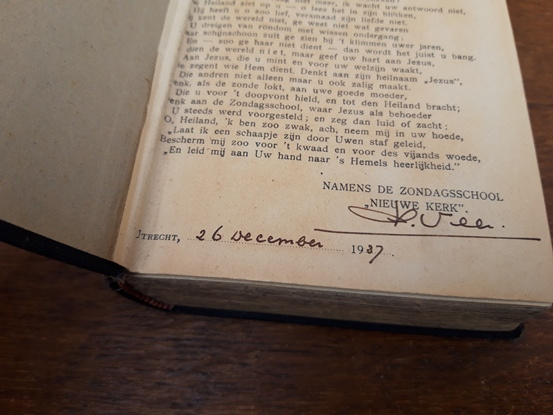 e Heiland ziet op u — o lees het in zijn blikken,
Hij heeft u zoo lief, versmaad zijn liefde niet.
kent de wereld niet, ge weet niet wat gevaren
U dreigen van rondom met wissen ondergang;
schijnschoon suit ge zien bij 't klimmen uwer jaren,
En — zoo ge haar niet dient — dan wordt het juist u bang.
dien de wereld niet, maar geef uw hart aan Jesus,
Aan Jezus, die u mint en voor uw welzijn waakt,
e zegent wie Hem dient. Denkt aan zijn heilnaam „Jezus",
Die andren niet alleen maar u ook zalig maakt.
enk, als de zonde lokt, aan uwe goede moeder,
Die u voor 't doopvont hield, en tot den Heiland bracht;
enk aan de Zondagsschool, waar Jezus als behoeder
U steeds werd voorgesteld; en zeg dan luid of zacht:
O, Heiland, 'k ben zoo zwak, ach, neem mij in uw hoede,
„Laat ik een schaapje zijn door Uwen staf geleid,
Bescherm mij zoo voor 't kwaad en voor des vijands woede,
„En leid mij aan Uw hand naar 's Hemels heerlijkheid."
NAMENS DE ZONDAGSSCHOOL
„NIEUWE KERK".
UTRECHT, 26 December 1937.